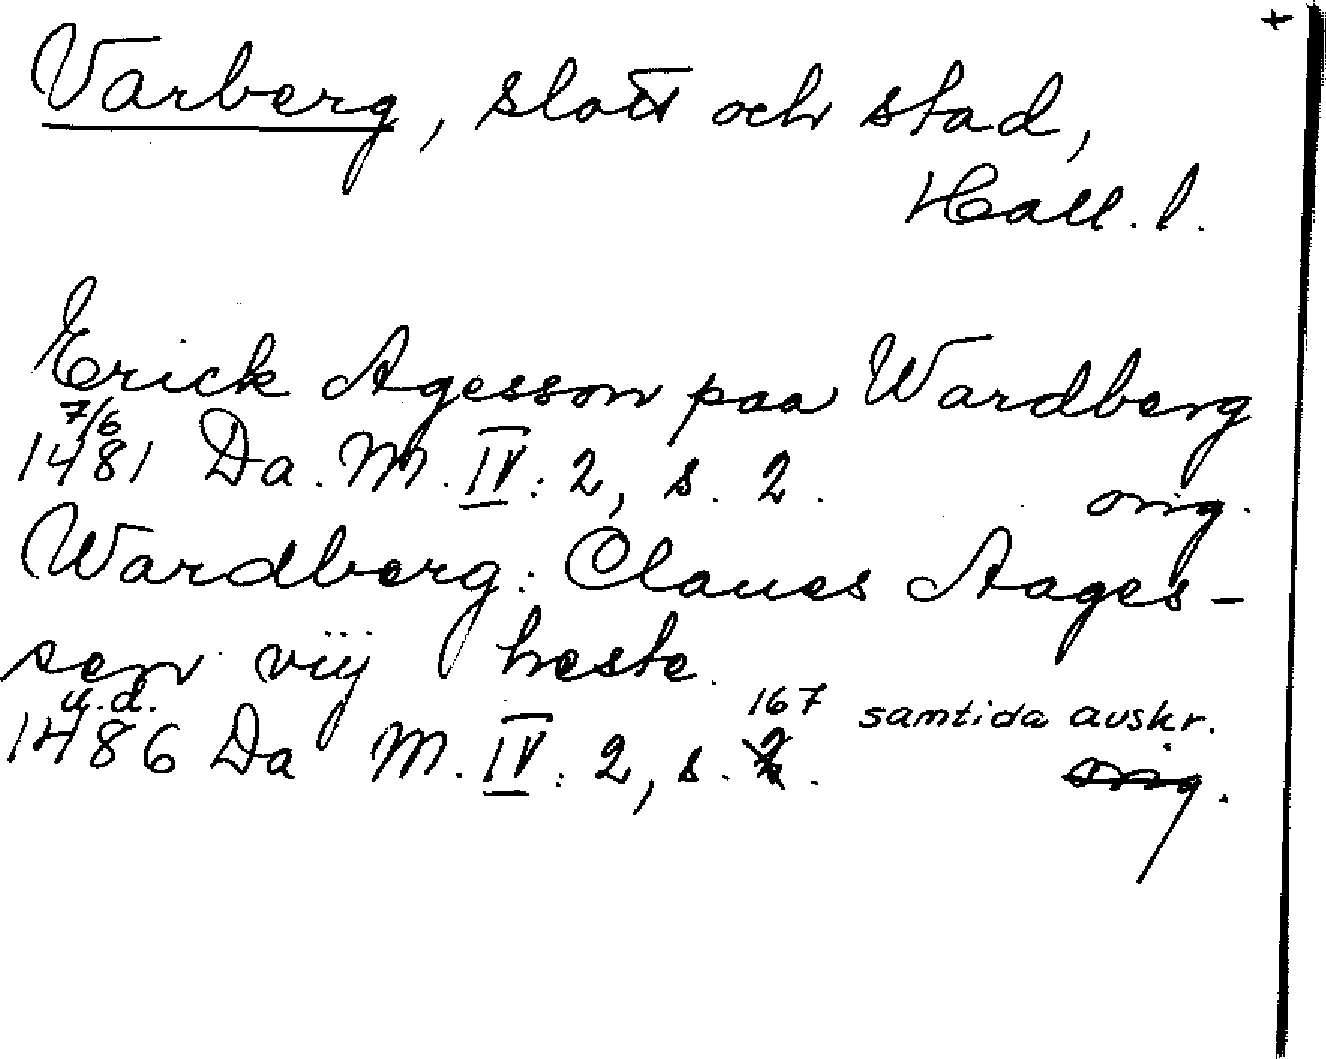 +
Varberg, slott och stad,
Hall. l.
Erick Agesson paa Wardberg
7/6
1481 Da. M. IV: 2, s. 2. orig.
Wardberg: Claues Aages-
sen vij heste.
u.d. 167 samtida avskr.
1486 Da M. IV: 2, s. 2. orig.